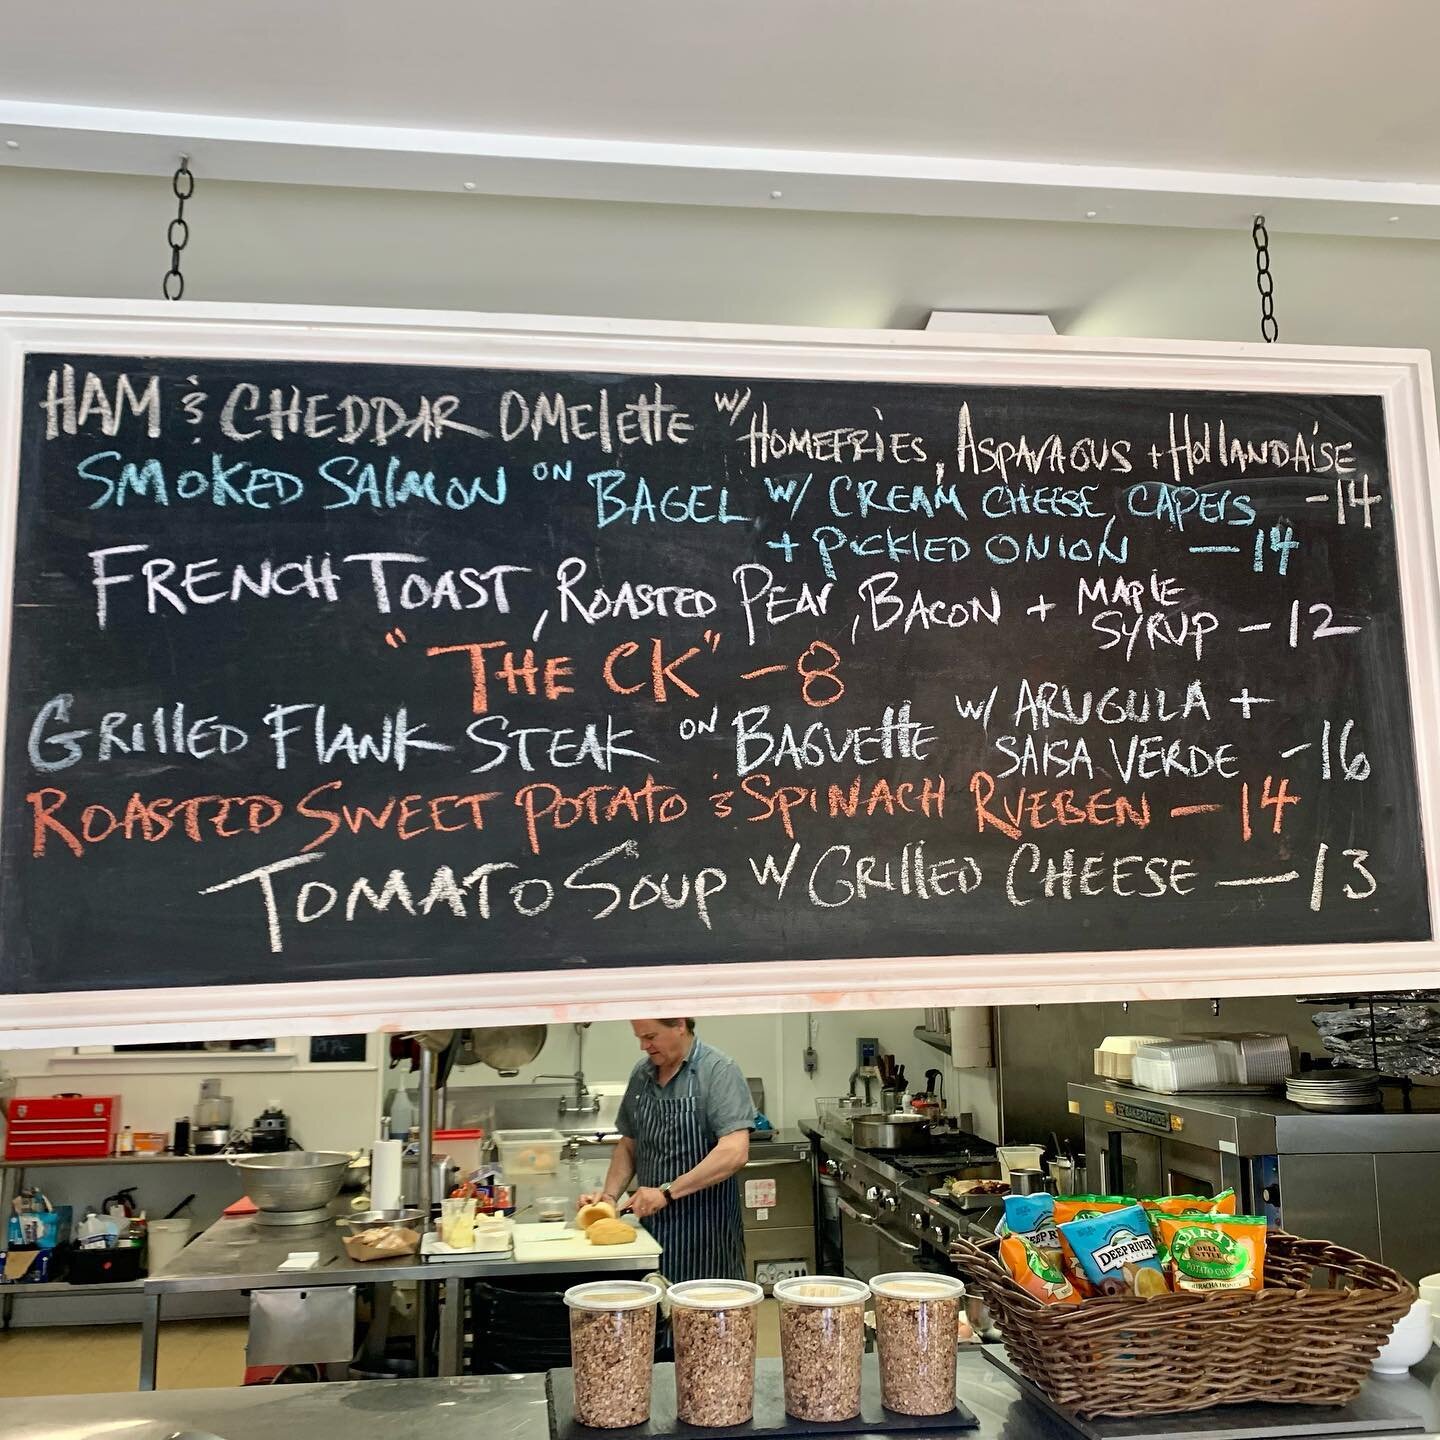 HAM & CHEDDAR OMElette w/ HOMEFRIES, ASPARAGUS + HollANDAiSE -14
SMOKED SAlMON ON BAGEL w/ CREAM CHEESE, CAPERS
+ PiCKLED ONION — 14
FRENCH TOAST, ROASTED PEAr, BACON + MAPlE SYRUP - 12
"THE CK" - 8
GRillED FlANK STEAK ON BAGUEtte w/ ARUGULA + SAlSA VERDE - 16
ROASTED SWEET POTATO & SPINACH RUEBEN - 14
TOMATO SOUP w/ GRillED CHEESE — 13
BAKERS PRIDE
DEEP RIVER
DEEP RIVER
DIRTY
DELI STYLE
POTATO CHIPS
SRIRACHA HONEY